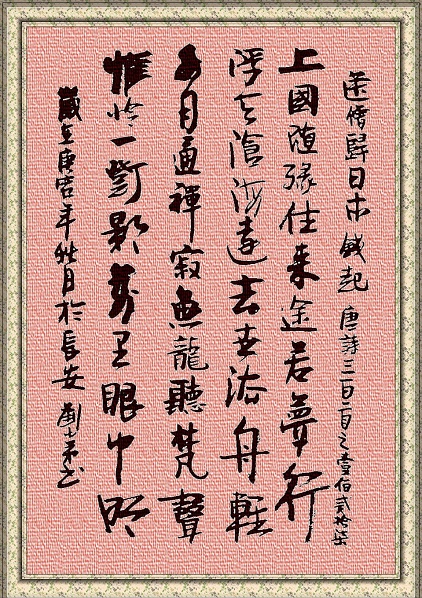 送僧歸日本 錢起 唐詩三百首之壹佰貳拾柒
上國隨緣住來途若夢行
浮天滄海遠去世法舟輕
水月通禪寂魚龍聽梵聲
惟憐一燈影萬里眼中明
歲在庚寅年秋月於長安